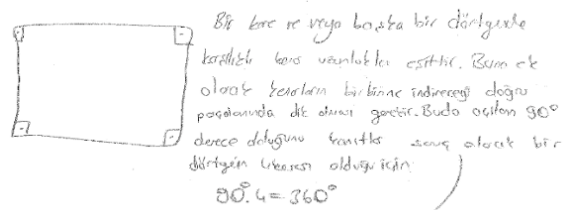 Bir kare ve veya başka bir dörtgende
karşılıklı kenar uzunlukları eşittir. Buna ek
olarak kenarların birbirine indireceği doğru
parçalarınında dik olması gerekir. Buda açıların 90°
derece olduğunu kanıtlar sonuç olarak bir
dörtgenin 4 köşesi olduğu için
90°.4=360°